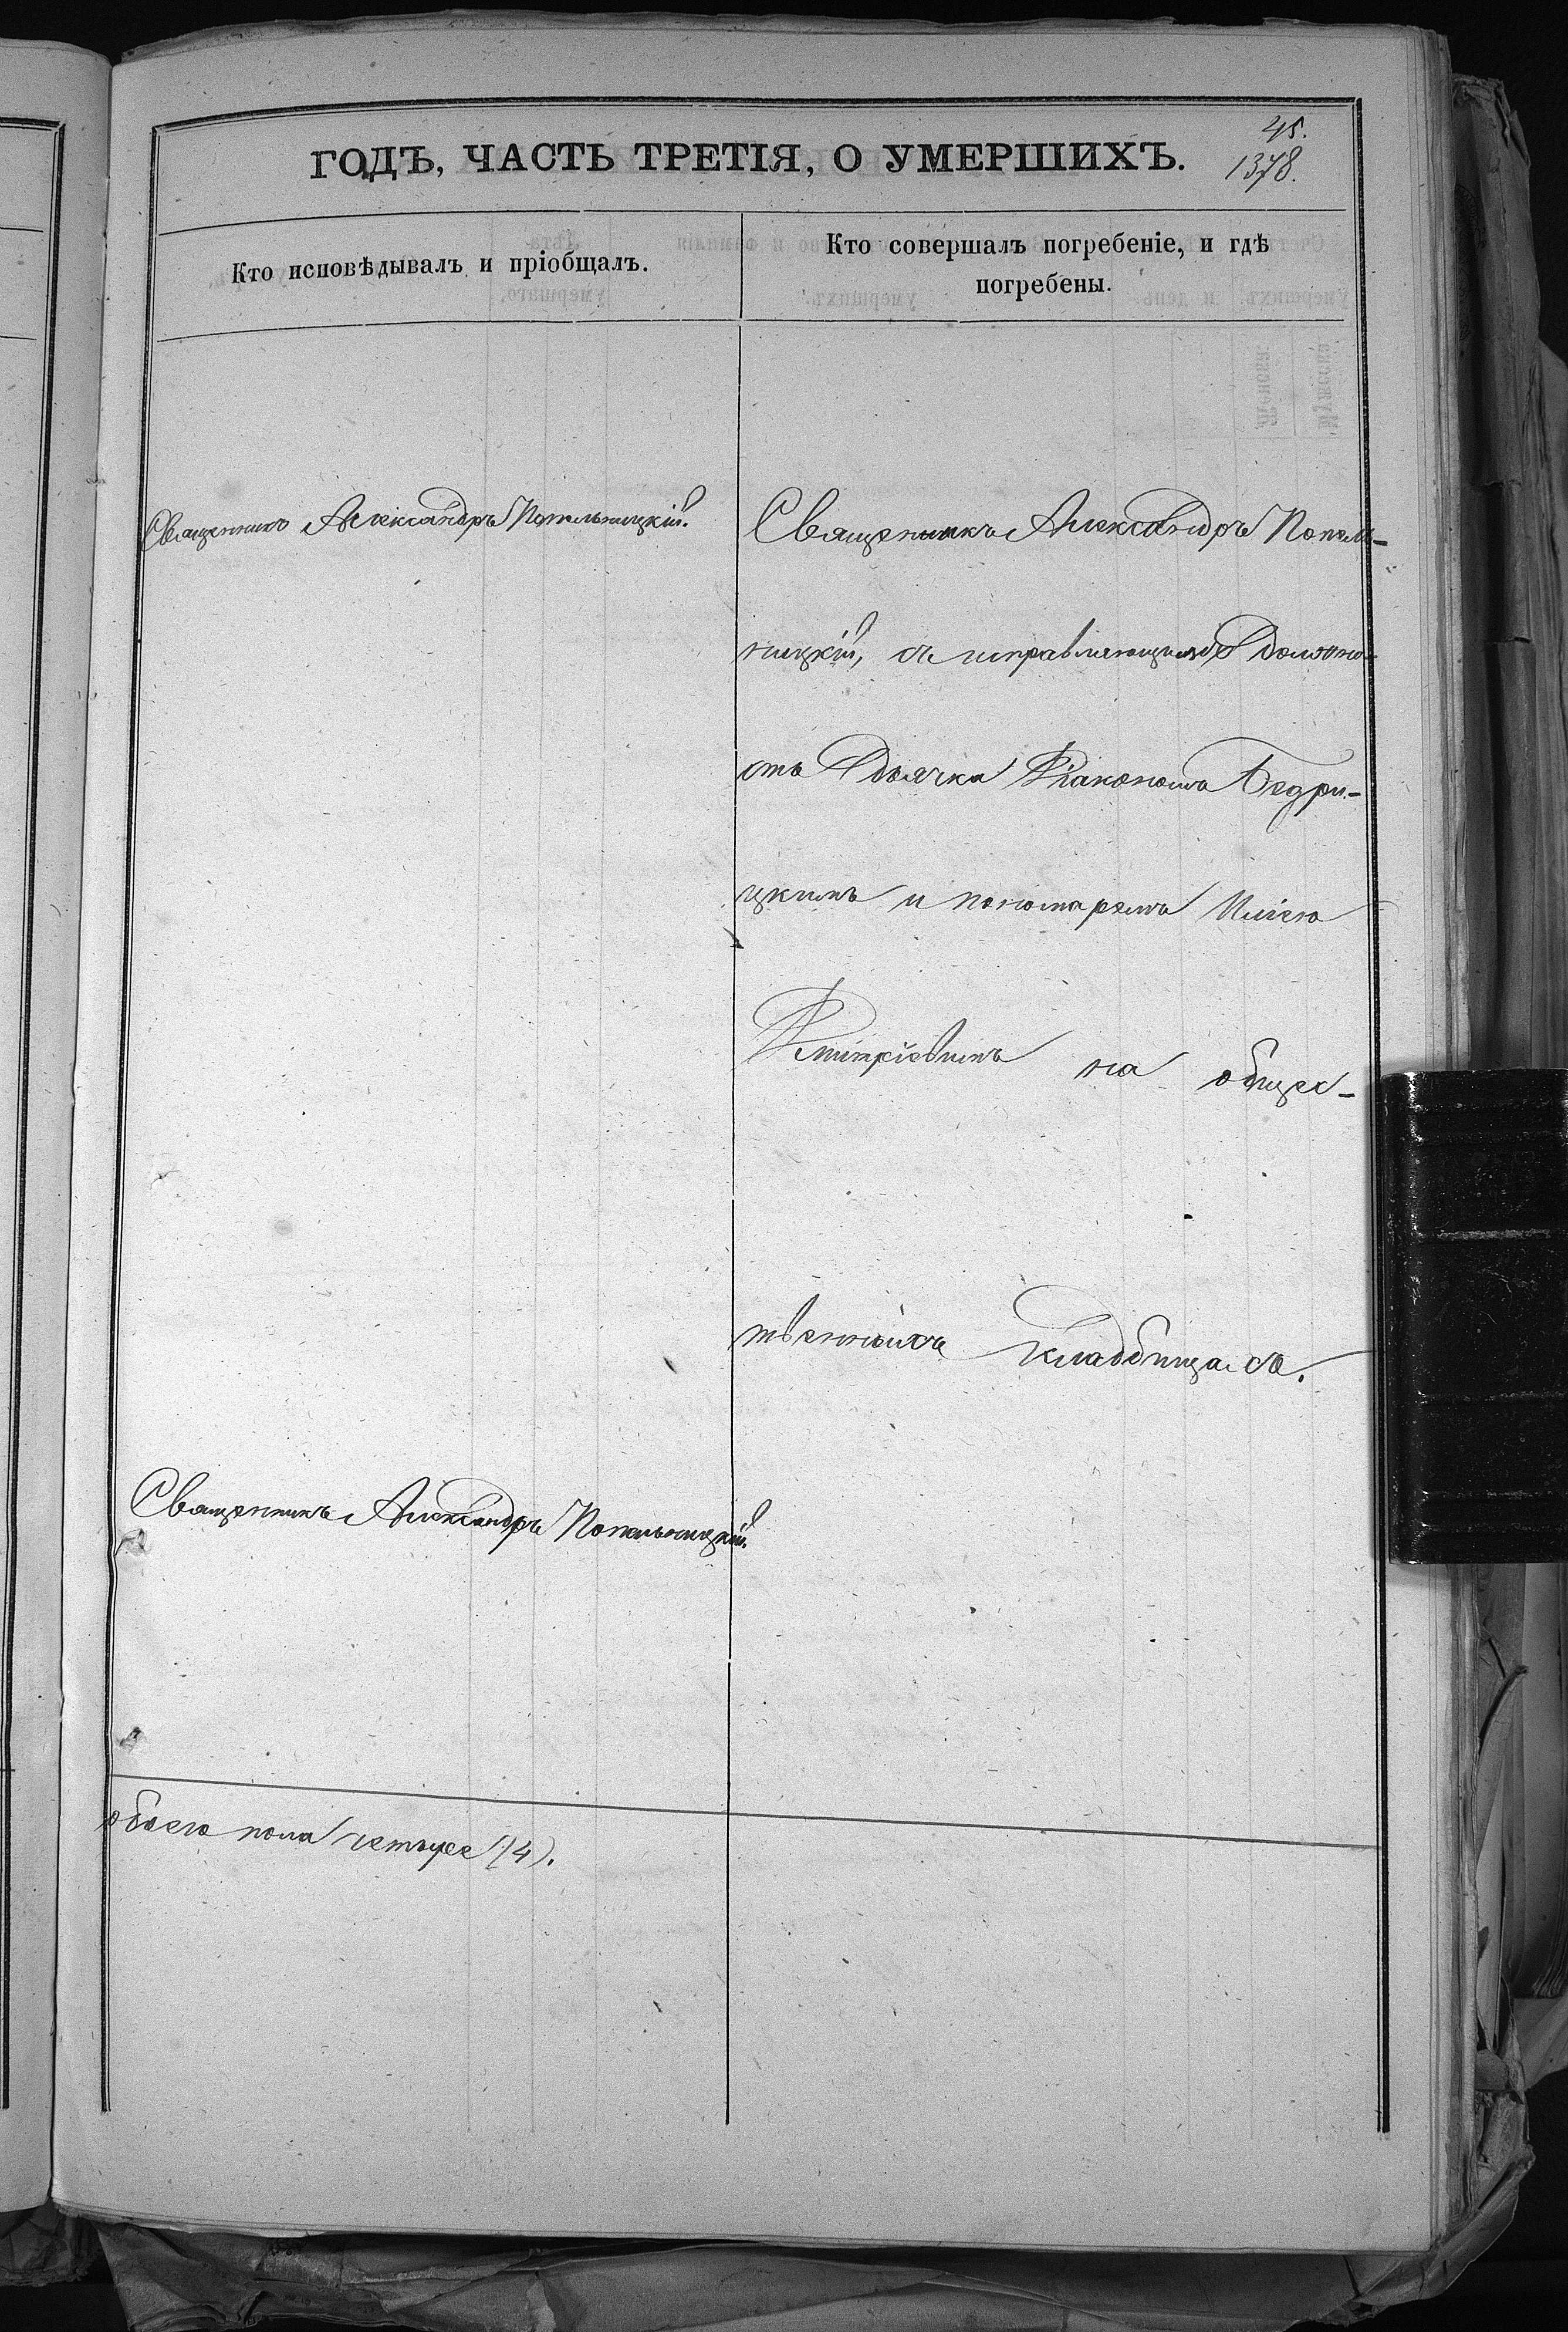 45.
1378.
ГОДЪ, ЧАСТЬ ТРЕТІЯ, О УМЕРШИХЪ.
Кто исповѣдывалъ и пріобщалъ.
Кто совершалъ погребеніе, и гдѣ
погребены.
Священникъ Александръ Попельницкій.
Священникъ Александръ Попель-
ницкій, съ исправляющимъ должно-
сть дьячка Діакономъ Бедри-
цкимъ и пономаремъ Иліею
Дмитріевымъ на общес-
твенныхъ кладбищахъ.
Священникъ Александръ Попельницкій.
обоего пола четыре (4).